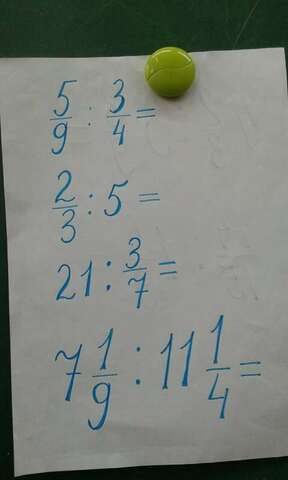 5/9 : 3/4 =
2/3 : 5 =
21 : 3/7 =
7 1/9 : 11 1/4 =